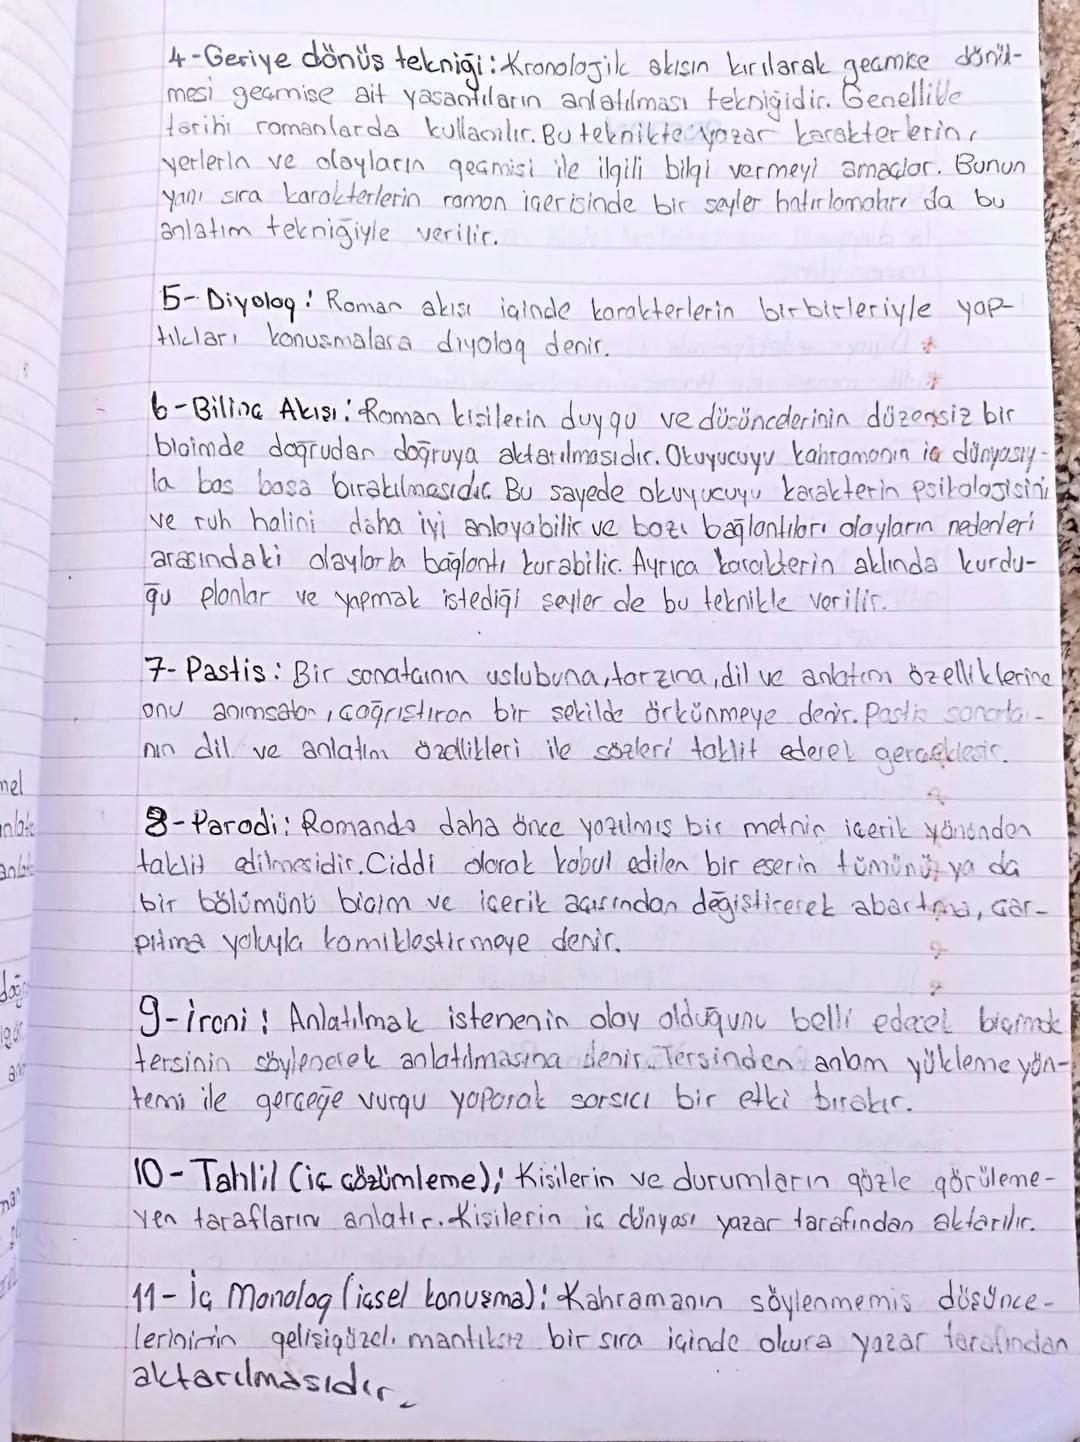 4-Geriye dönüş tekniği: Kronolojik akısın kırılarak geçmise dönül-
mesi geçmise ait yasantıların anlatılması tekniğidir. Genellikle
tarihi romanlarda kullanılır. Bu teknikte yazar karakterlerin,
yerlerin ve olayların geçmisi ile ilgili bilgi vermeyi amaçlar. Bunun
yanı sıra karakterlerin roman içerisinde bir seyler hatırlamaları da bu
anlatım tekniğiyle verilir.
5-Diyolog: Roman akısı içinde karakterlerin birbirleriyle yap-
tıkları konusmalara diyolog denir.
6-Bilinç Akışı: Roman kisilerin duygu ve düsüncelerinin düzensiz bir
biçimde doğrudan doğruya aktarılmasıdır. Okuyucuyu kahramanın iç dünyasıy-
la bas basa bırakılmasıdır. Bu sayede okuyucuyu karakterin psikolojisini
ve ruh halini daha iyi anlayabilir ve bazı bağlantıları olayların nedenleri
arasındaki olaylarla bağlantı kurabilir. Ayrıca karakterin aklında kurdu-
ğu planlar ve yapmak istediği seyler de bu teknikle verilir.
7-Pastis: Bir sanatcının uslubuna, tarzına, dil ve anlatım özelliklerine
onu anımsatan, çağrıstıran bir sekilde örkünmeye denir. Pastis sanatçı-
nın dil ve anlatım özellikleri ile sözleri taklit ederek gerçeklesir.
8-Parodi: Romanda daha önce yazılmış bir metnin içerik yönünden
taklit edilmesidir. Ciddi olarak kabul edilen bir eserin tümünü ya da
bir bölümünü biçim ve içerik açısından değiştirerek abartma, çar-
pıtma yoluyla komiklestirmeye denir.
9-İroni: Anlatılmak istenenin alay olduğunu belli edecek biçimde
tersinin söylenerek anlatılmasına denir. Tersinden anlam yükleme yön-
temi ile gerçeğe vurgu yaparak sarsıcı bir etki bırakır.
10-Tahlil (iç çözümleme): Kisilerin ve durumların gözle görüleme-
yen taraflarını anlatır. Kisilerin iç dünyası yazar tarafından aktarılır.
11-İç Monolog (içsel konuşma): Kahramanın söylenmemis düşünce-
lerininin gelisigüzel, mantıksız bir sıra içinde okura yazar tarafından
aktarılmasıdır.